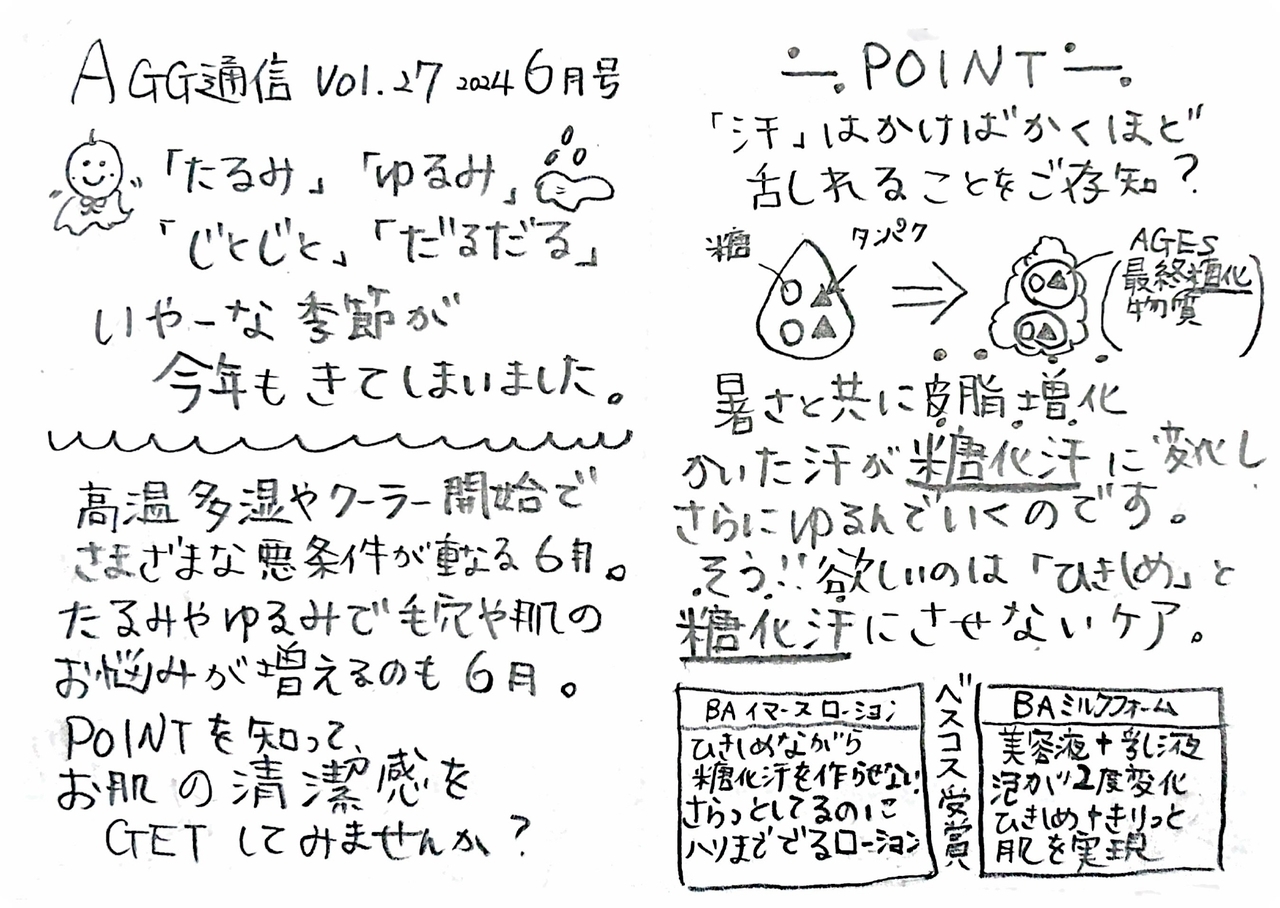 AGG通信 Vol.27 2024 6月号
「たるみ」「ゆるみ」
「じとじと」「だるだる」
いやーな季節が
今年もきてしまいました。
高温多湿やクーラー開始で
さまざまな悪条件が重なる6月。
たるみやゆるみで毛穴や肌の
お悩みが増えるのも6月。
POINTを知って、
お肌の清潔感を
GETしてみませんか?
POINT
「汗」はかけばかくほど
乱れることをご存知?
糖
タンパク
AGES
(最終糖化
物質)
暑さと共に皮脂増化
かいた汗が糖化汗に変化し
さらにゆるんでいくのです。
そう!!欲しいのは「ひきしめ」と
糖化汗にさせないケア。
BAイマースローション
ひきしめながら
糖化汗を作らせない!
さらっとしてるのに
ハリまででるローション
ベスコス受賞
BAミルクフォーム
美容液+乳液
泡が2度変化
ひきしめ+きりっと
肌を実現